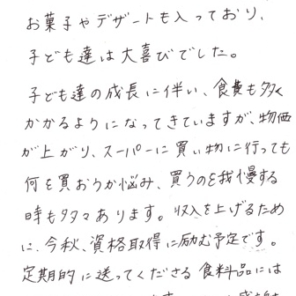 お菓子やデザートも入っており、
子ども達は大喜びでした。
子ども達の成長に伴い、食費も多く
かかるようになってきていますが、物価
が上がり、スーパーに買い物に行っても
何を買おうか悩み、買うのを我慢する
時も多々あります。収入を上げるため
に、今秋、資格取得に励む予定です。
定期的に送ってくださる食料品には